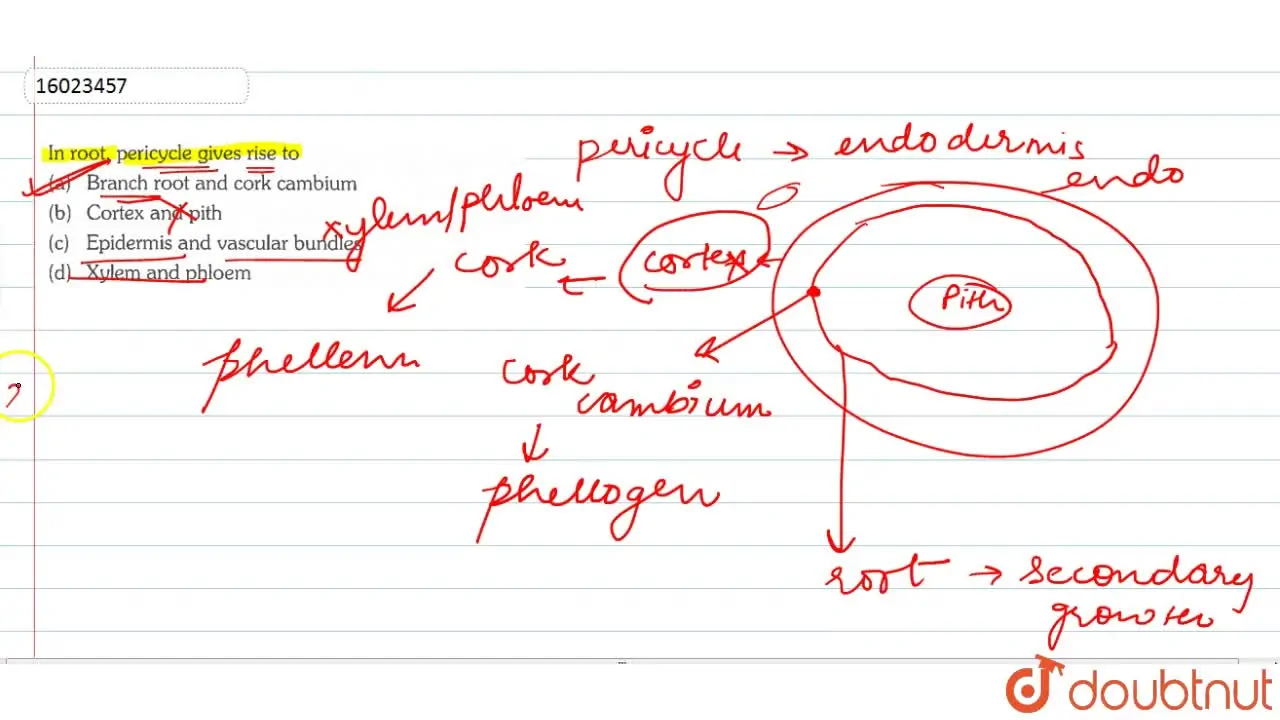 16023457
In root, pericycle gives rise to
(a) Branch root and cork cambium
(b) Cortex and pith
(c) Epidermis and vascular bundles
(d) Xylem and phloem
pericycle → endodermis
endo
xylem/phloem
cork ← cortex ←
Pith
phellem
cork
cambium
phellogen
root → secondary
growth
doubtnut